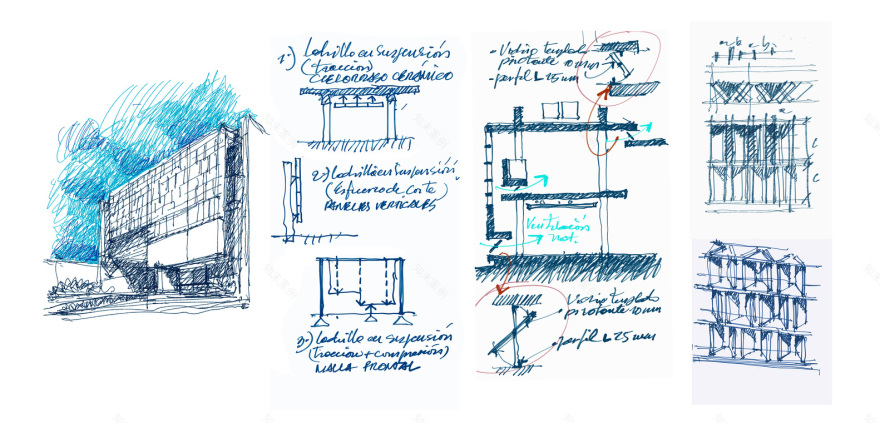 1.) Ladrillo en suspensión
(tracción)
CIELORRASO CERÁMICO
2.) Ladrillo en Suspensión
(Esfuerzo de corte)
PANELES VERTICALES
3.) Ladrillo en suspensión
(tracción + compresión)
MALLA FRONTAL
- Vidrio templado
pivotante 10 mm
- perfil L 25 mm
Ventilación
nat.
Vidrio templado
pivotante 10 mm
- perfil L 25 mm
a b b